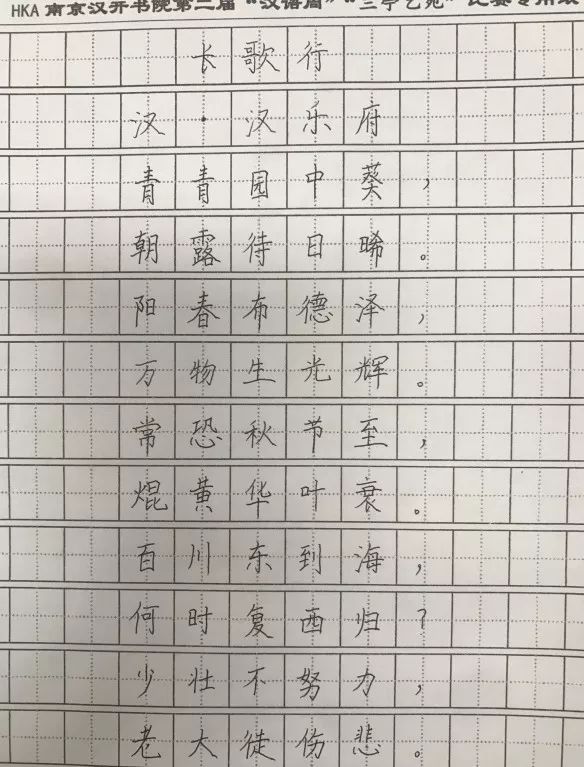 HKA 南京汉开书院第二届“汉语周”“三字艺苑”比赛专用纸
长歌行
汉·汉乐府
青青园中葵，
朝露待日晞。
阳春布德泽，
万物生光辉。
常恐秋节至，
焜黄华叶衰。
百川东到海，
何时复西归？
少壮不努力，
老大徒伤悲。